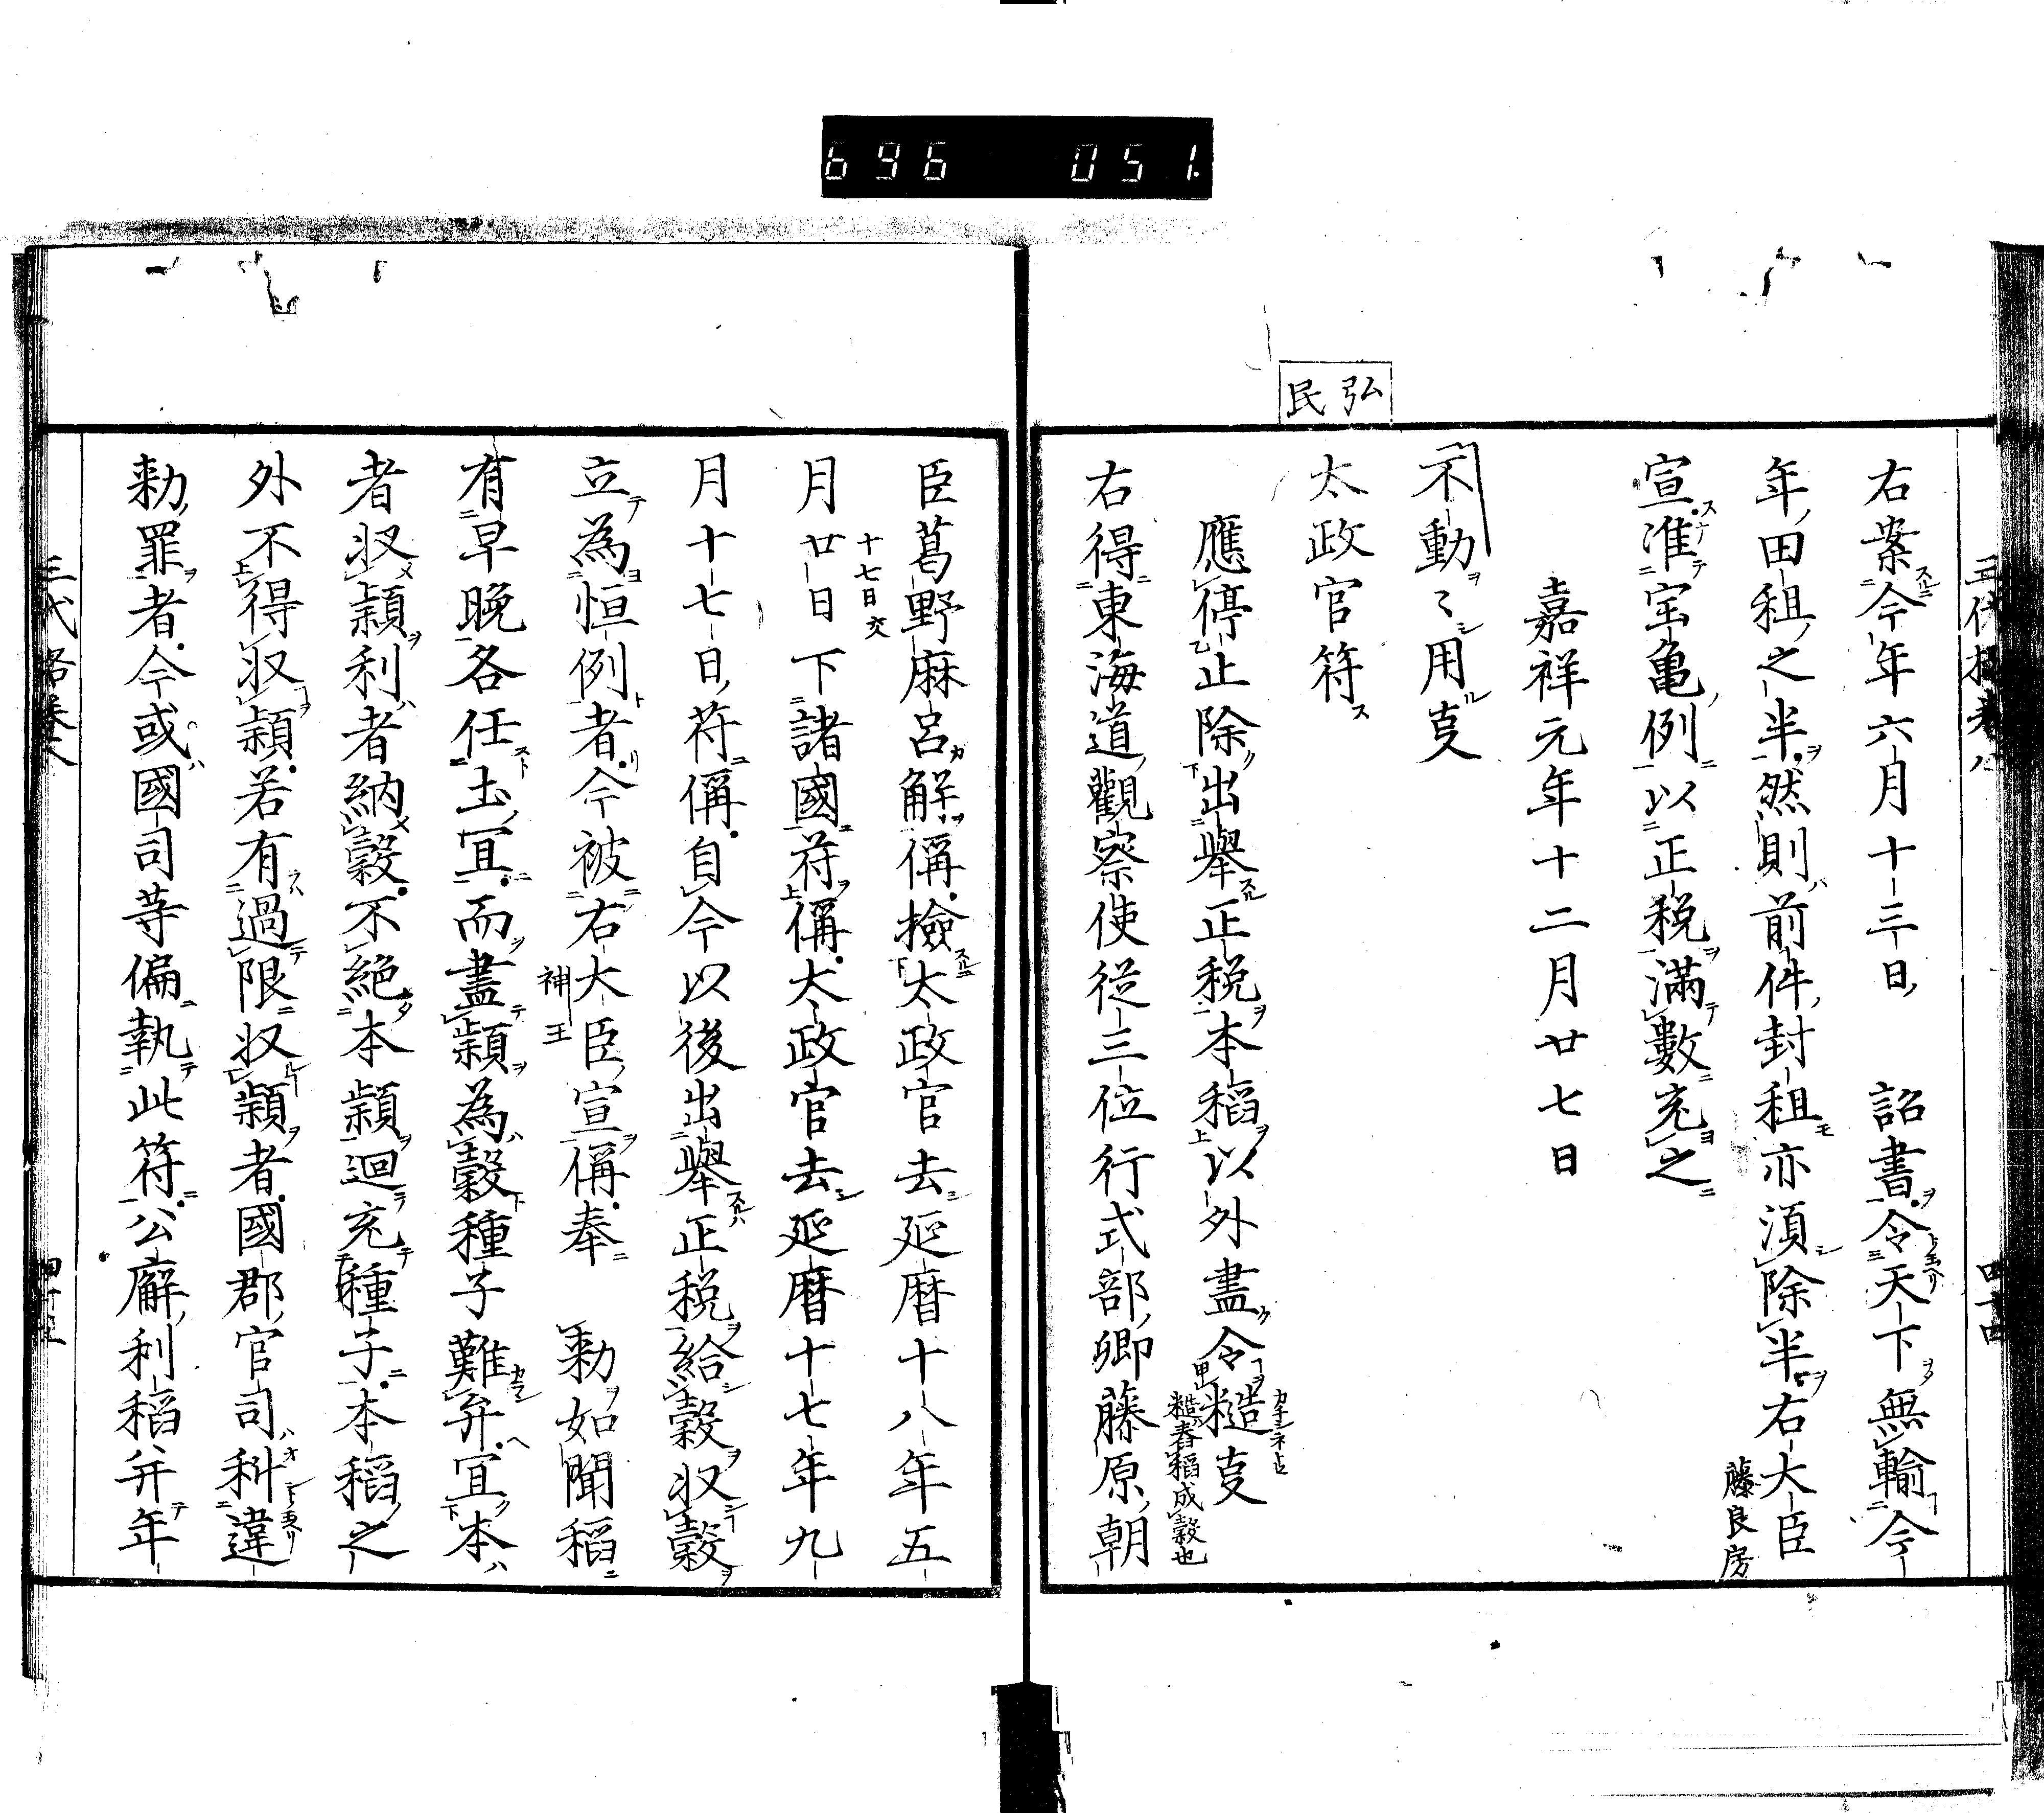 696 051.
右案今年六月十三日詔書令天下無輸今
年田租之半然則前件封租亦湏除半右大臣
藤良房
宣准宝亀例以正税滿數充之
嘉祥元年十二月廿七日
不動〻用㕝
弘民
太政官符
應停止除出舉正税本稻以外盡令糙㕝
糙舂稻成穀也
右得東海道觀察使従三位行式部卿藤原朝
臣葛野麻呂解偁撿太政官去延暦十八年五
十七日交
月廿日下諸國符偁太政官去延暦十七年九
月十七日符偁自今以後出舉正税給穀収穀
立為恒例者今被右大臣宣偁奉勅如聞稻
神王
有早晩各任土冝而盡頴為穀種子難弁冝本
者収頴利者納穀不絶本頴迴充種子本稻之
外不得収頴若有過限収頴者國郡官司科違
勅罪者今或國司等偏執此符公廨利稻并年
三代格巻八